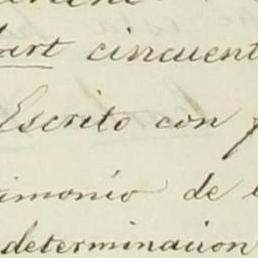 art cincuent
Escrito con
imonio de
determinacion